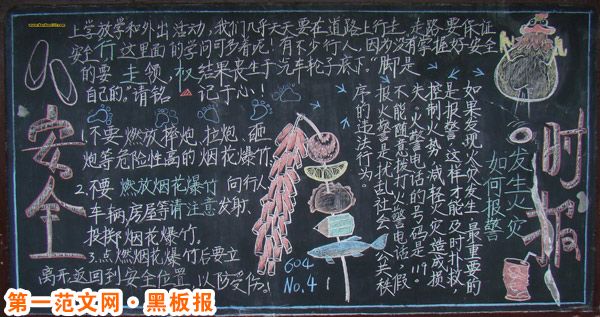 上学放学和外出活动,我们几乎天天要在道路上行走,走路要保证
安全行这里面的学问可多着呢!有不少行人,因为没有掌握好安全
的要领,结果丧生于汽车轮子底下。"脚是
自己的。"请铭记于心!
安全
1.不要燃放摔炮、拉炮、砸
炮等危险性高的烟花爆竹.
2.不要燃放烟花爆竹向行人、
车辆,房屋等请注意发射、
投掷烟花爆竹.
3.点燃烟花爆竹后要立
离开返回到安全位置,以防受伤。
604
No.4!
时报
发生火灾
如何报警
如果发现火灾发生,最重要的
是报警,这样才能及时扑救,
控制火势,减轻火灾造成损
失。火警电话的号码是119。
不能随意拨打火警电话,假
报火警是扰乱社会公共秩
序的违法行为。
第一范文网·黑板报